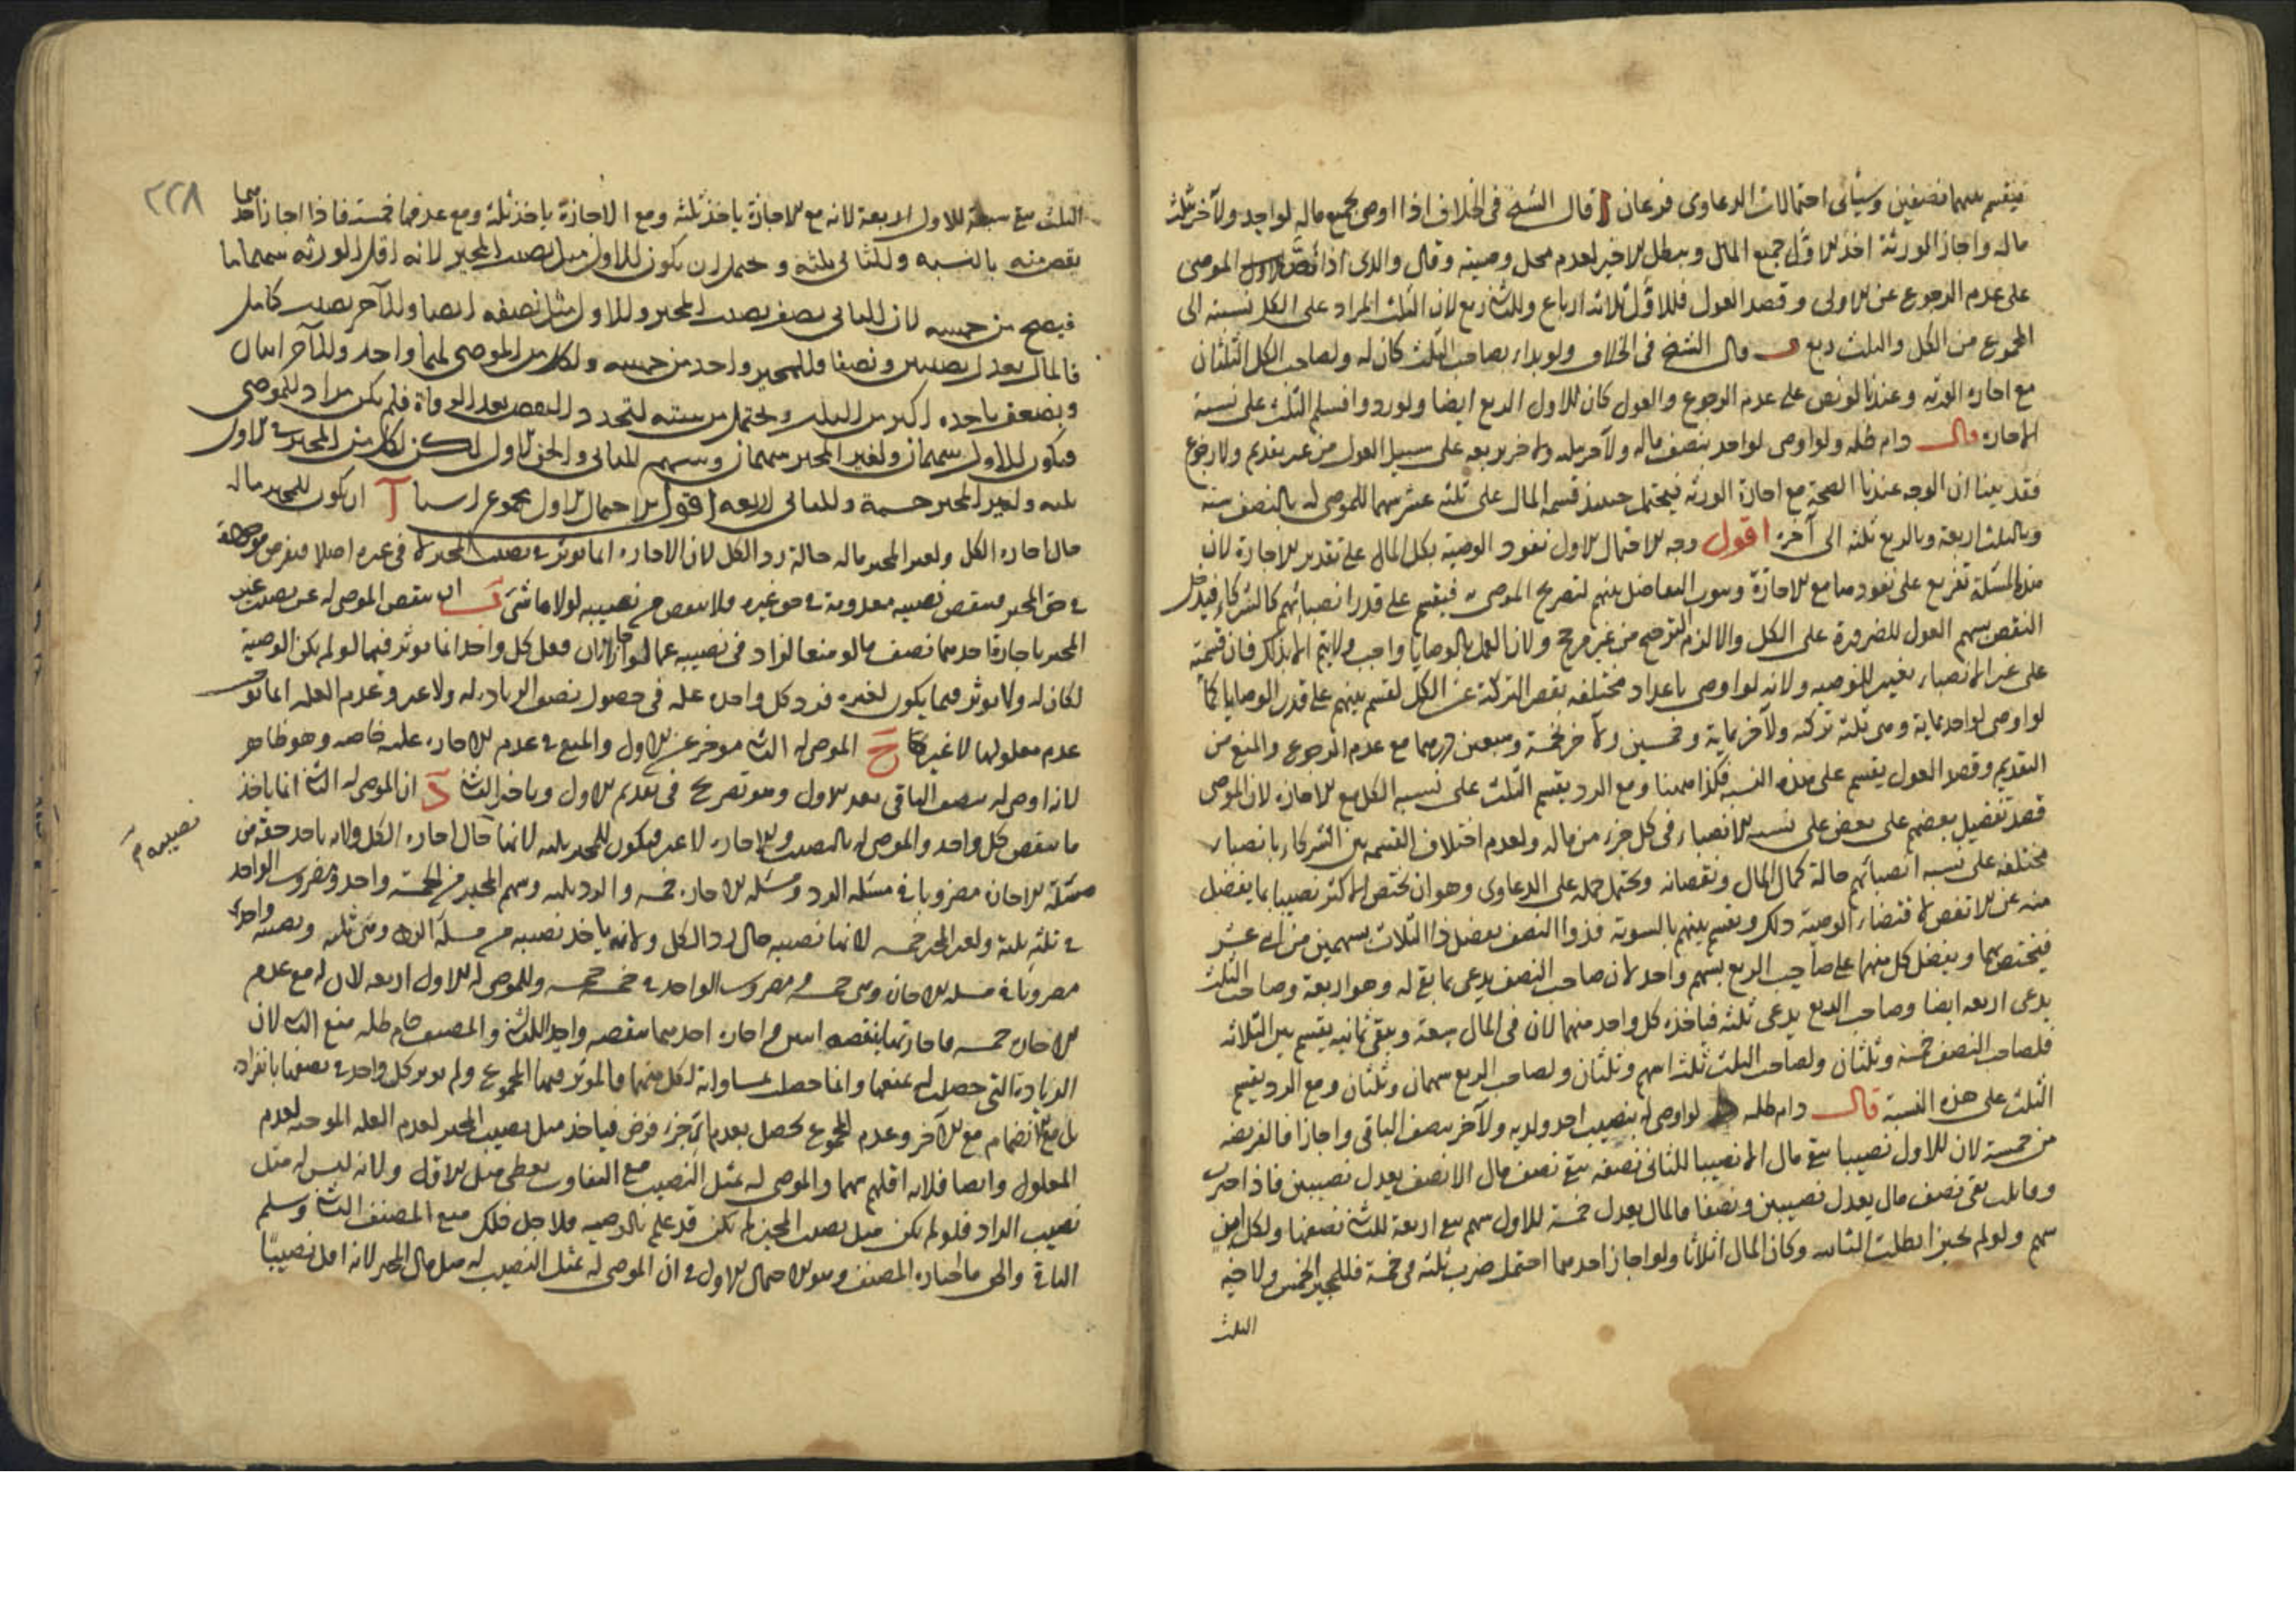 فيقسم بينهما نصفين وسيأتي احتمالات الدعاوى فرعان آ قال الشيخ في الخلاف اذا اوصى بجميع ماله لواحد ولآخر بثلث
ماله واجاز الورثة اخذ الاول جميع المال وبطل الاخير لعدم محل وصيته وقال والدي اذا نص الموصي
على عدم الرجوع عن الاولى وقصد العول فللاول ثلاثة ارباع وللثاني ربع لان الثلث المزاد على الكل نسبته الى
المجموع من الكل والثلث ربع ب قال الشيخ في الخلاف ولو بداء بصاحب الثلث كان له ولصاحب الكل الثلثان
مع اجازة الورثة وعندنا لو نص على عدم الرجوع والعول كان للاول الربع ايضا ولو ردوا قسم الثلث على نسبة
الاجازة قال دام ظله ولو اوصى لواحد بنصف ماله ولآخر بثلثه ولاخر بربعه على سبيل العول من غير تقديم ولا رجوع
فقد بينا ان الوجه عندنا الصحة مع اجازة الورثة فيحتمل حينئذ قسمة المال على ثلثة عشر سهما للموصى له بالنصف ستة
وبالثلث اربعة وبالربع ثلثة الى آخره اقول وجه الاحتمال الاول نفوذ الوصية بكل المال على تقدير الاجازة لان
هذه المسئلة تفريع على نفوذها مع الاجازة وثبوت التفاضل بينهم لتصريح الموصي به فيقسم على قدر انصبائهم كالشركاء فيدخل
النقص بينهم العول للضرورة على الكل والا لزم الترجيح من غير مرجح ولان العمل بالوصايا واجب ولا يتم الا بذلك فان قسمته
على غير الانصباء تغيير للوصية ولانه لو اوصى باعداد مختلفة تقصر التركة عن الكل لقسم بينهم على قدر الوصايا كما
لو اوصى لواحد بماية وهي ثلثة تركته ولآخر بماية وخمسين ولآخر بخمسة وسبعين درهما مع عدم الرجوع والمنع من
التقديم وقصد العول يقسم على هذه النسبة فكذا ههنا ومع الرد يقسم الثلث على نسبة الكل مع الاجازة لان الموصي
قصد تفضيل بعضهم على بعض على نسبة الانصباء في كل جزء من ماله ولعدم اختلاف القسمة بين الشركاء بانصباء
مختلفة على نسبة انصبائهم حالة كمال المال ونقصانه ويحتمل حمله على الدعاوى وهو ان يختص الاكثر نصيبا بما يفضل
منه عن الانقص لاقتضاء الوصية ذلك ويقسم بينهم بالسوية فذوا النصف يفضل ذا الثلث بسهمين من اثنى عشر
فيختص بهما ويفضل كل منهما على صاحب الربع بسهم واحد لان صاحب النصف يدعي ما بقي له وهو اربعة وصاحب الثلث
يدعي اربعة ايضا وصاحب الربع يدعي ثلثة فيأخذه كل واحد منهما لان في المال سعة ويبقى ثمانية يقسم بين الثلاثة
فلصاحب النصف خمسة وثلثان ولصاحب الثلث ثلثة اسهم وثلثان ولصاحب الربع سهمان وثلثان ومع الرد يقسم
الثلث على هذه النسبة قال دام ظله لو اوصى له بنصيب احد ولديه ولآخر بنصف الباقي واجازا فالفريضة
من خمسة لان للاول نصيبا يبقى مال الا نصيبا للثاني نصفه يبقى نصف مال الا نصف يعدل نصيبين فاذا جبرت
وقابلت بقي نصف مال يعدل نصيبين ونصفا فالمال يعدل خمسة للاول سهم يبقى اربعة للثاني نصفها ولكل ابن
سهم ولو لم يجيز ابطلت الثانية وكان المال اثلاثا ولو اجاز احدهما احتمل ضرب ثلثة في خمسة فللمجيز الخمس ولاخيه
الثلث
٢٢٨
الثلث يبقى سبعة للاول اربعة لانه مع الاجازة ياخذ ثلثة ومع عدمها خمسة فاذا اجاز احدهما
نقص منه بالنسبة وللثاني ثلثة ويحتمل ان يكون للاول مثل نصيب المجيز لانه اقل الورثة سهما
فيصح من خمسة لان للثاني نصف نصيب المجيز وللاول مثل نصفه ايضا وللآخر نصيب كامل
فالمال يعدل نصيبين ونصفا وللمجيز واحد من خمسة ولكل من الموصى لهما واحد وللآخر اثنان
ويضعف باخذه اكثر من الثلث ويحتمل من ستة لتجدد النقص بعد الوفاة فلم يكن مراد للموصي
فيكون للاول سهمان ولغير المجيز سهمان وسهم للثاني والحق الاول لكن لكل من المجيز والاول
ثلثة ولغير المجيز خمسة وللثاني اربعة اقول الاحتمال الاول مجموع اشياء آ ان يكون للمجيز ماله
حال اجازة الكل ولغير المجيز ماله حالة رد الكل لان الاجازة انما تؤثر في نصيب المجيز لا في غيره اصلا
في حق المجيز فينقص نصيبه معدومة في حق غيره فلا ينقص من نصيبه لولاها شيء ب ان ينقص الموصى له عن نصيب غير
المجيز باجازة احدهما نصف ما لو منعا لزاد في نصيبه عما لو اجازا لان فعل كل واحد انما يؤثر فيما لو لم يكن الوصية
لكان له ولا يؤثر فيما يكون لغيره فرد كل واحد علة في حصول نصف الزيادة له ولا غير وعدم العلة انما
عدم معلولها لا غير ج الموصى له الثاني مؤخر عن الاول والمنع في عدم الاجازة عليه خاصة وهو ظاهر
لانه اوصى له بنصف الباقي بعد الاول وهو تصريح في تقديم الاول وتاخر الثاني د ان الموصى له الثاني انما ياخذ
ما ينقص كل واحد والموصى له بالنصيب بالاجازة لا غير فيكون للمجيز ثلثة لانها حال اجازة الكل ولانه ياخذ حقه من
مسئلة الاجازة مضروبا في مسئلة الرد ومسئلة الاجازة خمسة والرد ثلثة وسهم المجيز من الخمسة واحد ومضروب الواحد
في ثلثة ثلثة ولغير المجيز خمسة لانها نصيبه حال رد الكل ولانه ياخذ نصيبه من مسئلة الرد وهي ثلثة ونصيبه واحد
مضروبا في مسئلة الاجازة وهي خمسة ومضروب الواحد في خمسة خمسة وللموصى له الاول اربعة لان له مع عدم
الاجازة خمسة فاجازتهما ينقصه اثنين واجازة احدهما ينقصه واحد للثاني والمصنف دام ظله منع الثاني لان
الزيادة التي حصلت له بمنعهما وانما حصلت لمساواته لكل منهما فالموثر فيها المجموع ولم يوثر كل واحد في نصفها بانفراده
بل مع الانضمام مع الآخر وعدم المجموع يحصل بعدم اي جزء فرض فياخذ مثل نصيب المجيز لعدم العلة الموجبة لعدم
المعلول وايضا فلانه اقلهم سهما والموصى له بمثل النصيب مع التفاوت يعطى مثل الاقل ولانه ليس له مثل
نصيب الراد فلو لم يكن مثل نصيب المجيز لم يكن قد عمل بالوصية فلاجل ذلك منع المصنف الثاني وسلم
الباقي والحق ما اختاره المصنف وهو الاحتمال الاول في ان الموصى له بمثل النصيب له مثل مال المجيز لانه اقل نصيبا
نصيبه م